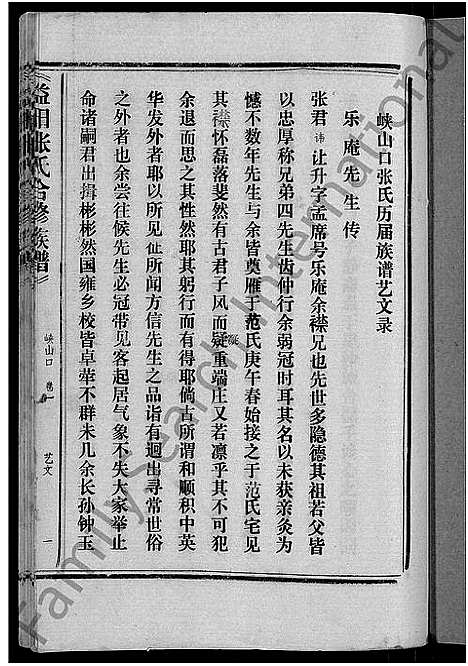 峡山口张氏历届族谱艺文录
乐庵先生传
张君讳让升字孟席号乐庵余襟兄也先世多隐德其祖若父皆
以忠厚称兄弟四先生齿仲行余弱冠时耳其名以未获亲灸为
憾不数年先生与余皆奠雁于范氏庚午春始接之于范氏宅见
其襟怀磊落斐然有古君子风而凝疑重端庄又若凛乎其不可犯
余退而思之其性然耶其躬行而有得耶倘古所谓和顺积中英
华发外者耶以所见征所闻方信先生之品诣有迥出寻常世俗
之外者也余尝往候先生必冠带见客起居气象不失大家举止
命诸嗣君出揖彬彬然国雍乡校皆卓荦不群未几余长孙钟玉
益阳张氏合修族谱
峡山口
卷一
艺文
一
FamilySearch International